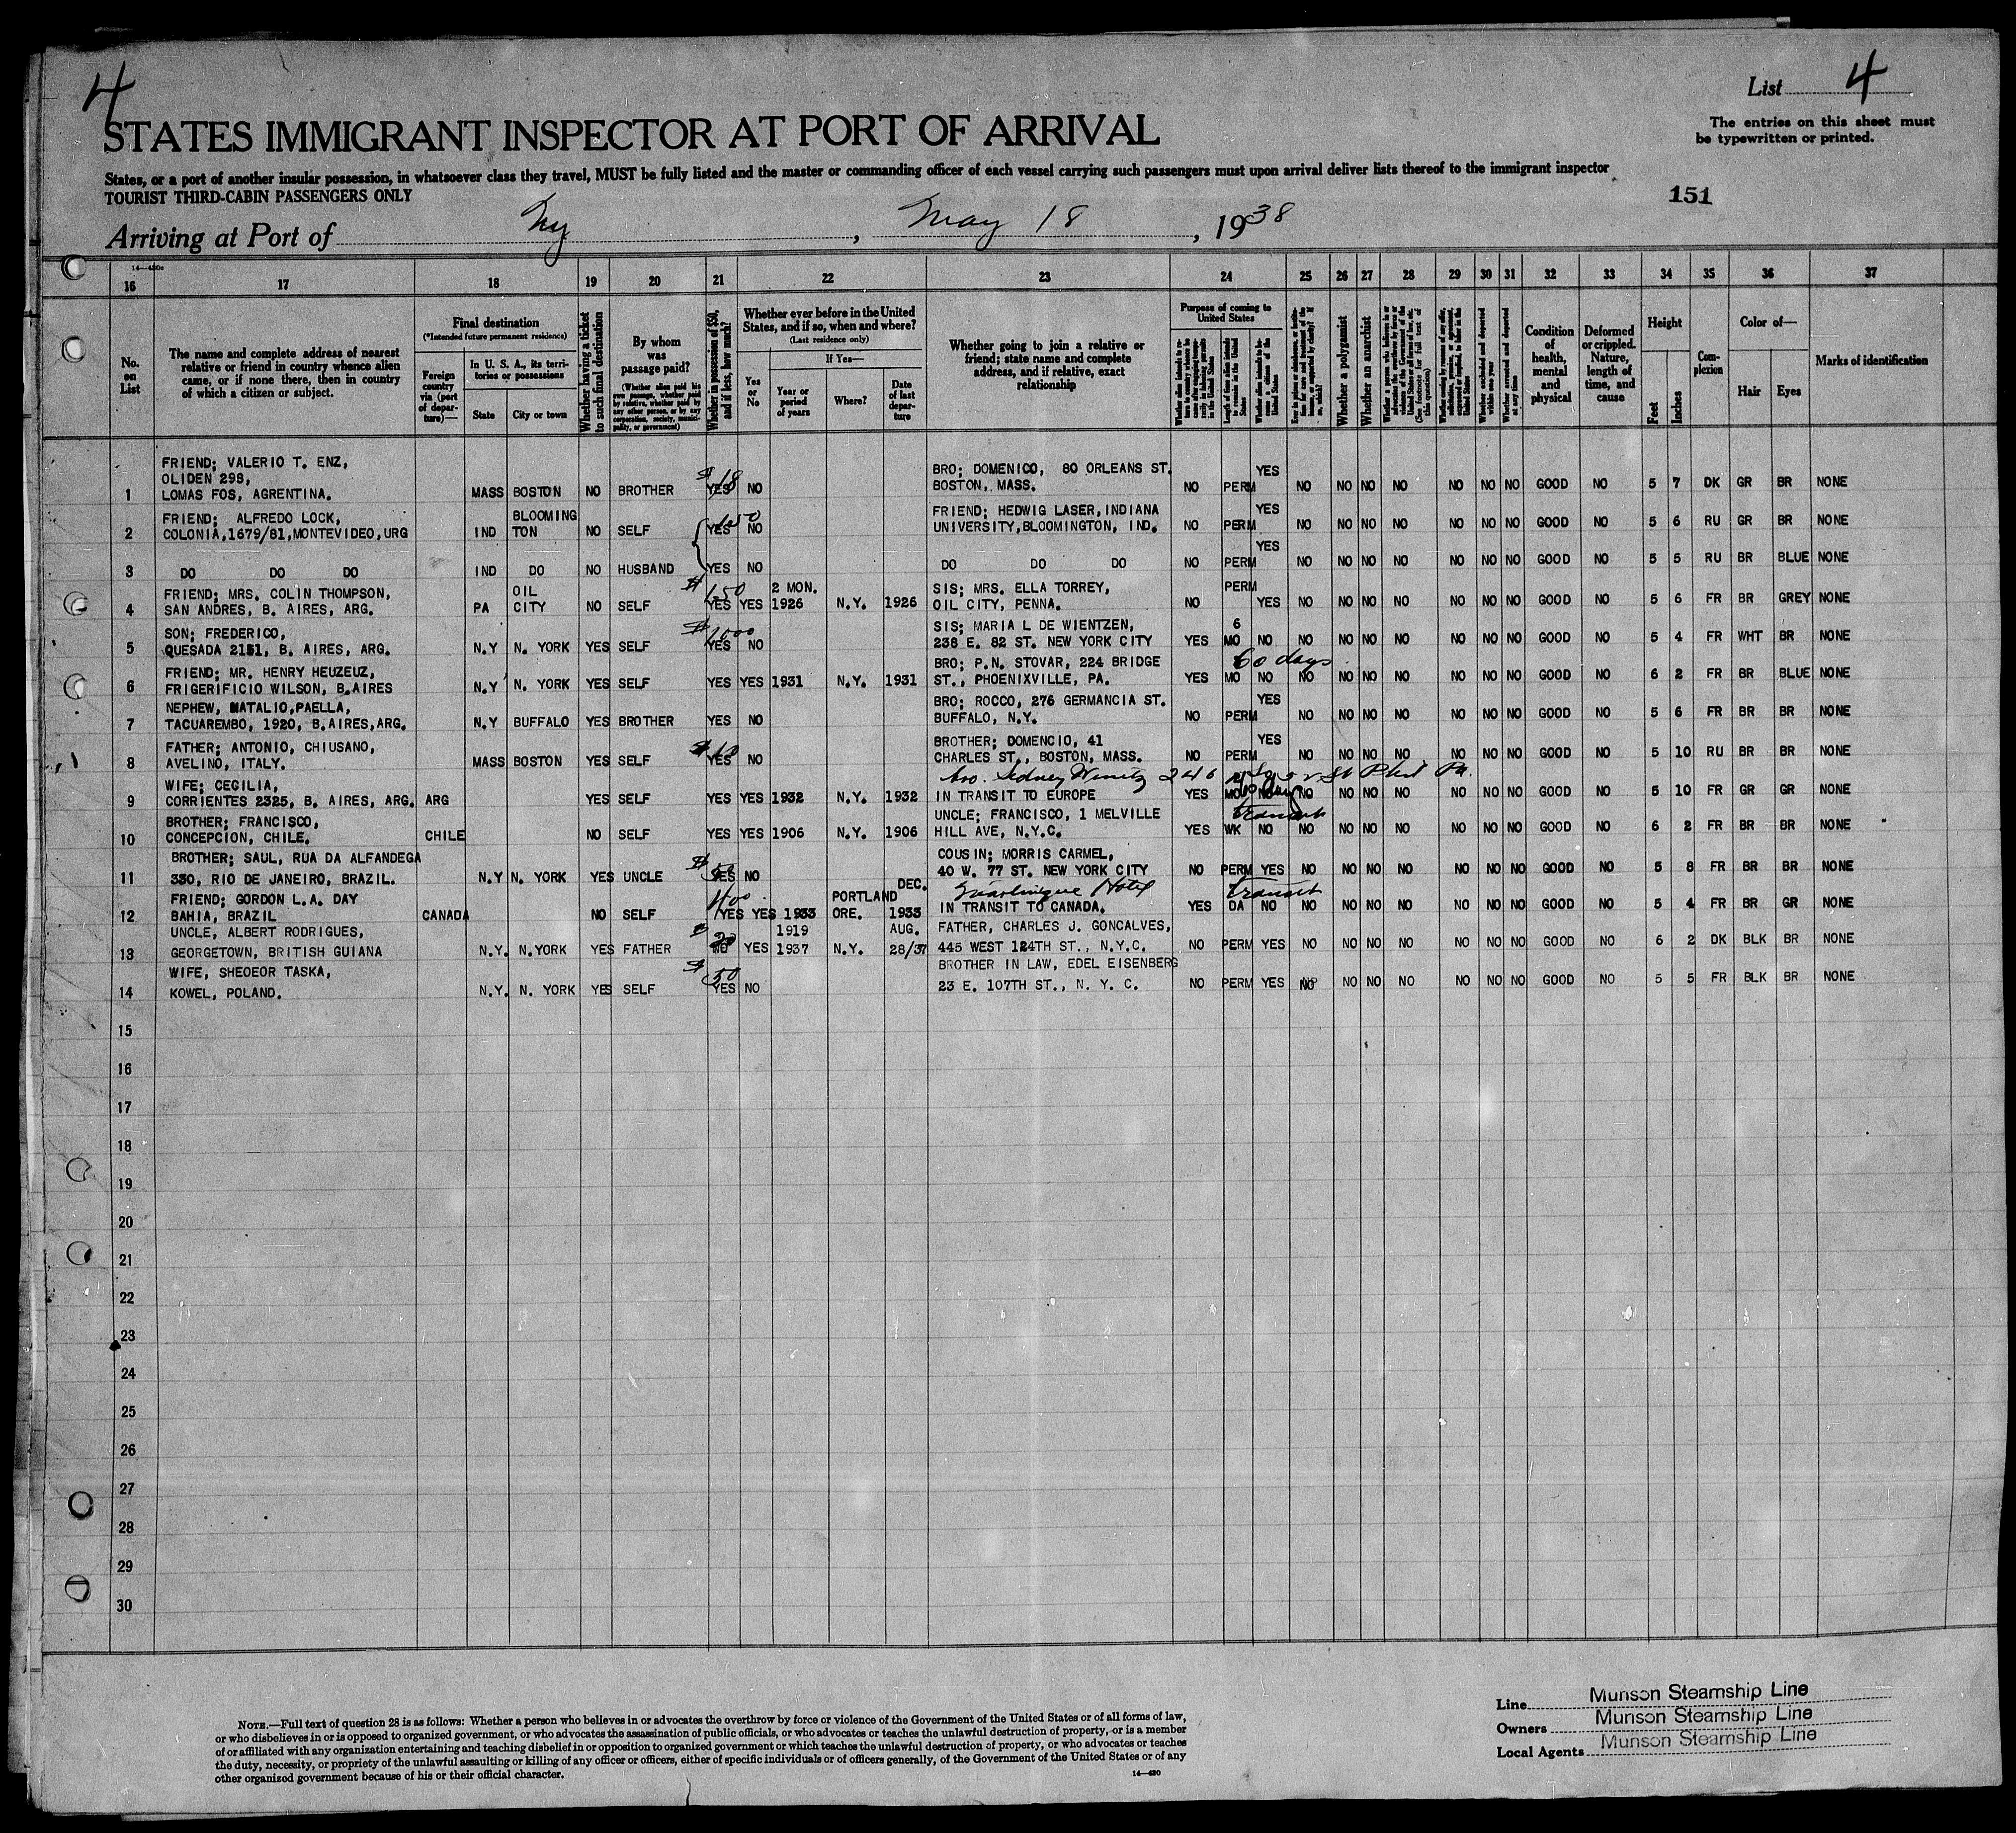 4
List 4
STATES IMMIGRANT INSPECTOR AT PORT OF ARRIVAL
The entries on this sheet must
be typewritten or printed.
States, or a port of another insular possession, in whatsoever class they travel, MUST be fully listed and the master or commanding officer of each vessel carrying such passengers must upon arrival deliver lists thereof to the immigrant inspector
TOURIST THIRD-CABIN PASSENGERS ONLY
151
Arriving at Port of Ny, May 18, 1938
16 17 18 19 20 21 22 23 24 25 26 27 28 29 30 31 32 33 34 35 36 37
No. on List
The name and complete address of nearest
relative or friend in country whence alien
came, or if none there, then in country
of which a citizen or subject.
Final destination
(*Intended future permanent residence)
Foreign country via (port of departure)—
In U. S. A., its territories or possessions
State
City or town
Whether having a ticket to such final destination
By whom was passage paid?
(Whether alien paid his own passage, whether paid by relative, whether paid by any other person, or by any corporation, society, municipality, or government)
Whether in possession of $50, and if less, how much?
Whether ever before in the United States, and if so, when and where?
(Last residence only)
If Yes—
Yes or No
Year or period of years
Where?
Date of last departure
Whether going to join a relative or
friend; state name and complete
address, and if relative, exact
relationship
Purpose of coming to United States
Whether a polygamist
Whether an anarchist
Condition of health, mental and physical
Deformed or crippled. Nature, length of time, and cause
Height
Feet
Inches
Complexion
Color of—
Hair
Eyes
Marks of identification
FRIEND; VALERIO T. ENZ, BRO; DOMENICO, 80 ORLEANS ST. YES
OLIDEN 298,
1 LOMAS FOS, AGRENTINA. MASS BOSTON NO BROTHER YES $18 NO BOSTON, MASS. NO PERM NO NO NO NO NO NO NO GOOD NO 5 7 DK GR BR NONE
FRIEND; ALFREDO LOCK, BLOOMING FRIEND; HEDWIG LASER, INDIANA YES
2 COLONIA,1679/81,MONTEVIDEO,URG IND TON NO SELF YES NO UNIVERSITY,BLOOMINGTON, IND. NO PERM NO NO NO NO NO NO NO GOOD NO 5 6 RU GR BR NONE
YES
3 DO DO DO IND DO NO HUSBAND YES NO DO DO DO NO PERM NO NO NO NO NO NO NO GOOD NO 5 5 RU BR BLUE NONE
FRIEND; MRS. COLIN THOMPSON, OIL $150 2 MON. SIS; MRS. ELLA TORREY, PERM
4 SAN ANDRES, B. AIRES, ARG. PA CITY NO SELF YES YES 1926 N.Y. 1926 OIL CITY, PENNA. NO YES NO NO NO NO NO NO NO GOOD NO 5 6 FR BR GREY NONE
SON; FREDERICO, $1000 SIS; MARIA L DE WIENTZEN, 6
5 QUESADA 2151, B. AIRES, ARG. N.Y N. YORK YES SELF YES NO 238 E. 82 ST. NEW YORK CITY YES MO NO NO NO NO NO NO NO NO GOOD NO 5 4 FR WHT BR NONE
FRIEND; MR. HENRY HEUZEUZ, BRO; P.N. STOVAR, 224 BRIDGE 60 days
6 FRIGERIFICIO WILSON, B.AIRES N.Y N. YORK YES SELF YES YES 1931 N.Y. 1931 ST., PHOENIXVILLE, PA. YES MO NO NO NO NO NO NO NO NO GOOD NO 6 2 FR BR BLUE NONE
NEPHEW, NATALIO,PAELLA, BRO; ROCCO, 276 GERMANCIA ST. YES
7 TACUAREMBO, 1920, B.AIRES,ARG. N.Y BUFFALO YES BROTHER YES NO BUFFALO, N.Y. NO PERM NO NO NO NO NO NO NO GOOD NO 5 6 FR BR BR NONE
FATHER; ANTONIO, CHIUSANO, BROTHER; DOMENCIO, 41 YES
8 AVELINO, ITALY. MASS BOSTON YES SELF YES NO CHARLES ST., BOSTON, MASS. NO PERM NO NO NO NO NO NO NO GOOD NO 5 10 RU BR BR NONE
WIFE; CECILIA, Sidney
9 CORRIENTES 2325, B. AIRES, ARG. ARG YES SELF YES YES 1932 N.Y. 1932 IN TRANSIT TO EUROPE YES MO NO NO NO NO NO NO NO NO GOOD NO 5 10 FR GR GR NONE
BROTHER; FRANCISCO, UNCLE; FRANCISCO, 1 MELVILLE transit
10 CONCEPCION, CHILE. CHILE NO SELF YES YES 1906 N.Y. 1906 HILL AVE, N.Y.C. YES WK NO NO NO NO NO NO NO NO GOOD NO 6 2 FR BR BR NONE
BROTHER; SAUL, RUA DA ALFANDEGA COUSIN; MORRIS CARMEL,
11 330, RIO DE JANEIRO, BRAZIL. N.Y N. YORK YES UNCLE YES NO 40 W. 77 ST. NEW YORK CITY NO PERM YES NO NO NO NO NO NO NO GOOD NO 5 8 FR BR BR NONE
FRIEND; GORDON L.A. DAY 400 PORTLAND DEC. Martinique Hotel transit
12 BAHIA, BRAZIL CANADA NO SELF YES YES 1933 ORE. 1933 IN TRANSIT TO CANADA. YES DA NO NO NO NO NO NO NO NO GOOD NO 5 4 FR BR GR NONE
UNCLE, ALBERT RODRIGUES, 1919 AUG. FATHER, CHARLES J. GONCALVES,
13 GEORGETOWN, BRITISH GUIANA N.Y. N.YORK YES FATHER NO YES 1937 N.Y. 28/37 445 WEST 124TH ST., N.Y.C. NO PERM YES NO NO NO NO NO NO NO GOOD NO 6 2 DK BLK BR NONE
WIFE, SHEOEOR TASKA, $50 BROTHER IN LAW, EDEL EISENBERG
14 KOWEL, POLAND. N.Y. N. YORK YES SELF YES NO 23 E. 107TH ST., N. Y. C. NO PERM YES NO NO NO NO NO NO NO GOOD NO 5 5 FR BLK BR NONE
15
16
17
18
19
20
21
22
23
24
25
26
27
28
29
30
NOTE.—Full text of question 28 is as follows: Whether a person who believes in or advocates the overthrow by force or violence of the Government of the United States or of all forms of law,
or who disbelieves in or is opposed to organized government, or who advocates the assassination of public officials, or who advocates or teaches the unlawful destruction of property, or is a member
of or affiliated with any organization entertaining and teaching disbelief in or opposition to organized government or which teaches the unlawful destruction of property, or who advocates or teaches
the duty, necessity, or propriety of the unlawful assaulting or killing of any officer or officers, either of specific individuals or of officers generally, of the Government of the United States or of any
other organized government because of his or their official character.
14—430
Line Munson Steamship Line
Owners Munson Steamship Line
Local Agents Munson Steamship Line